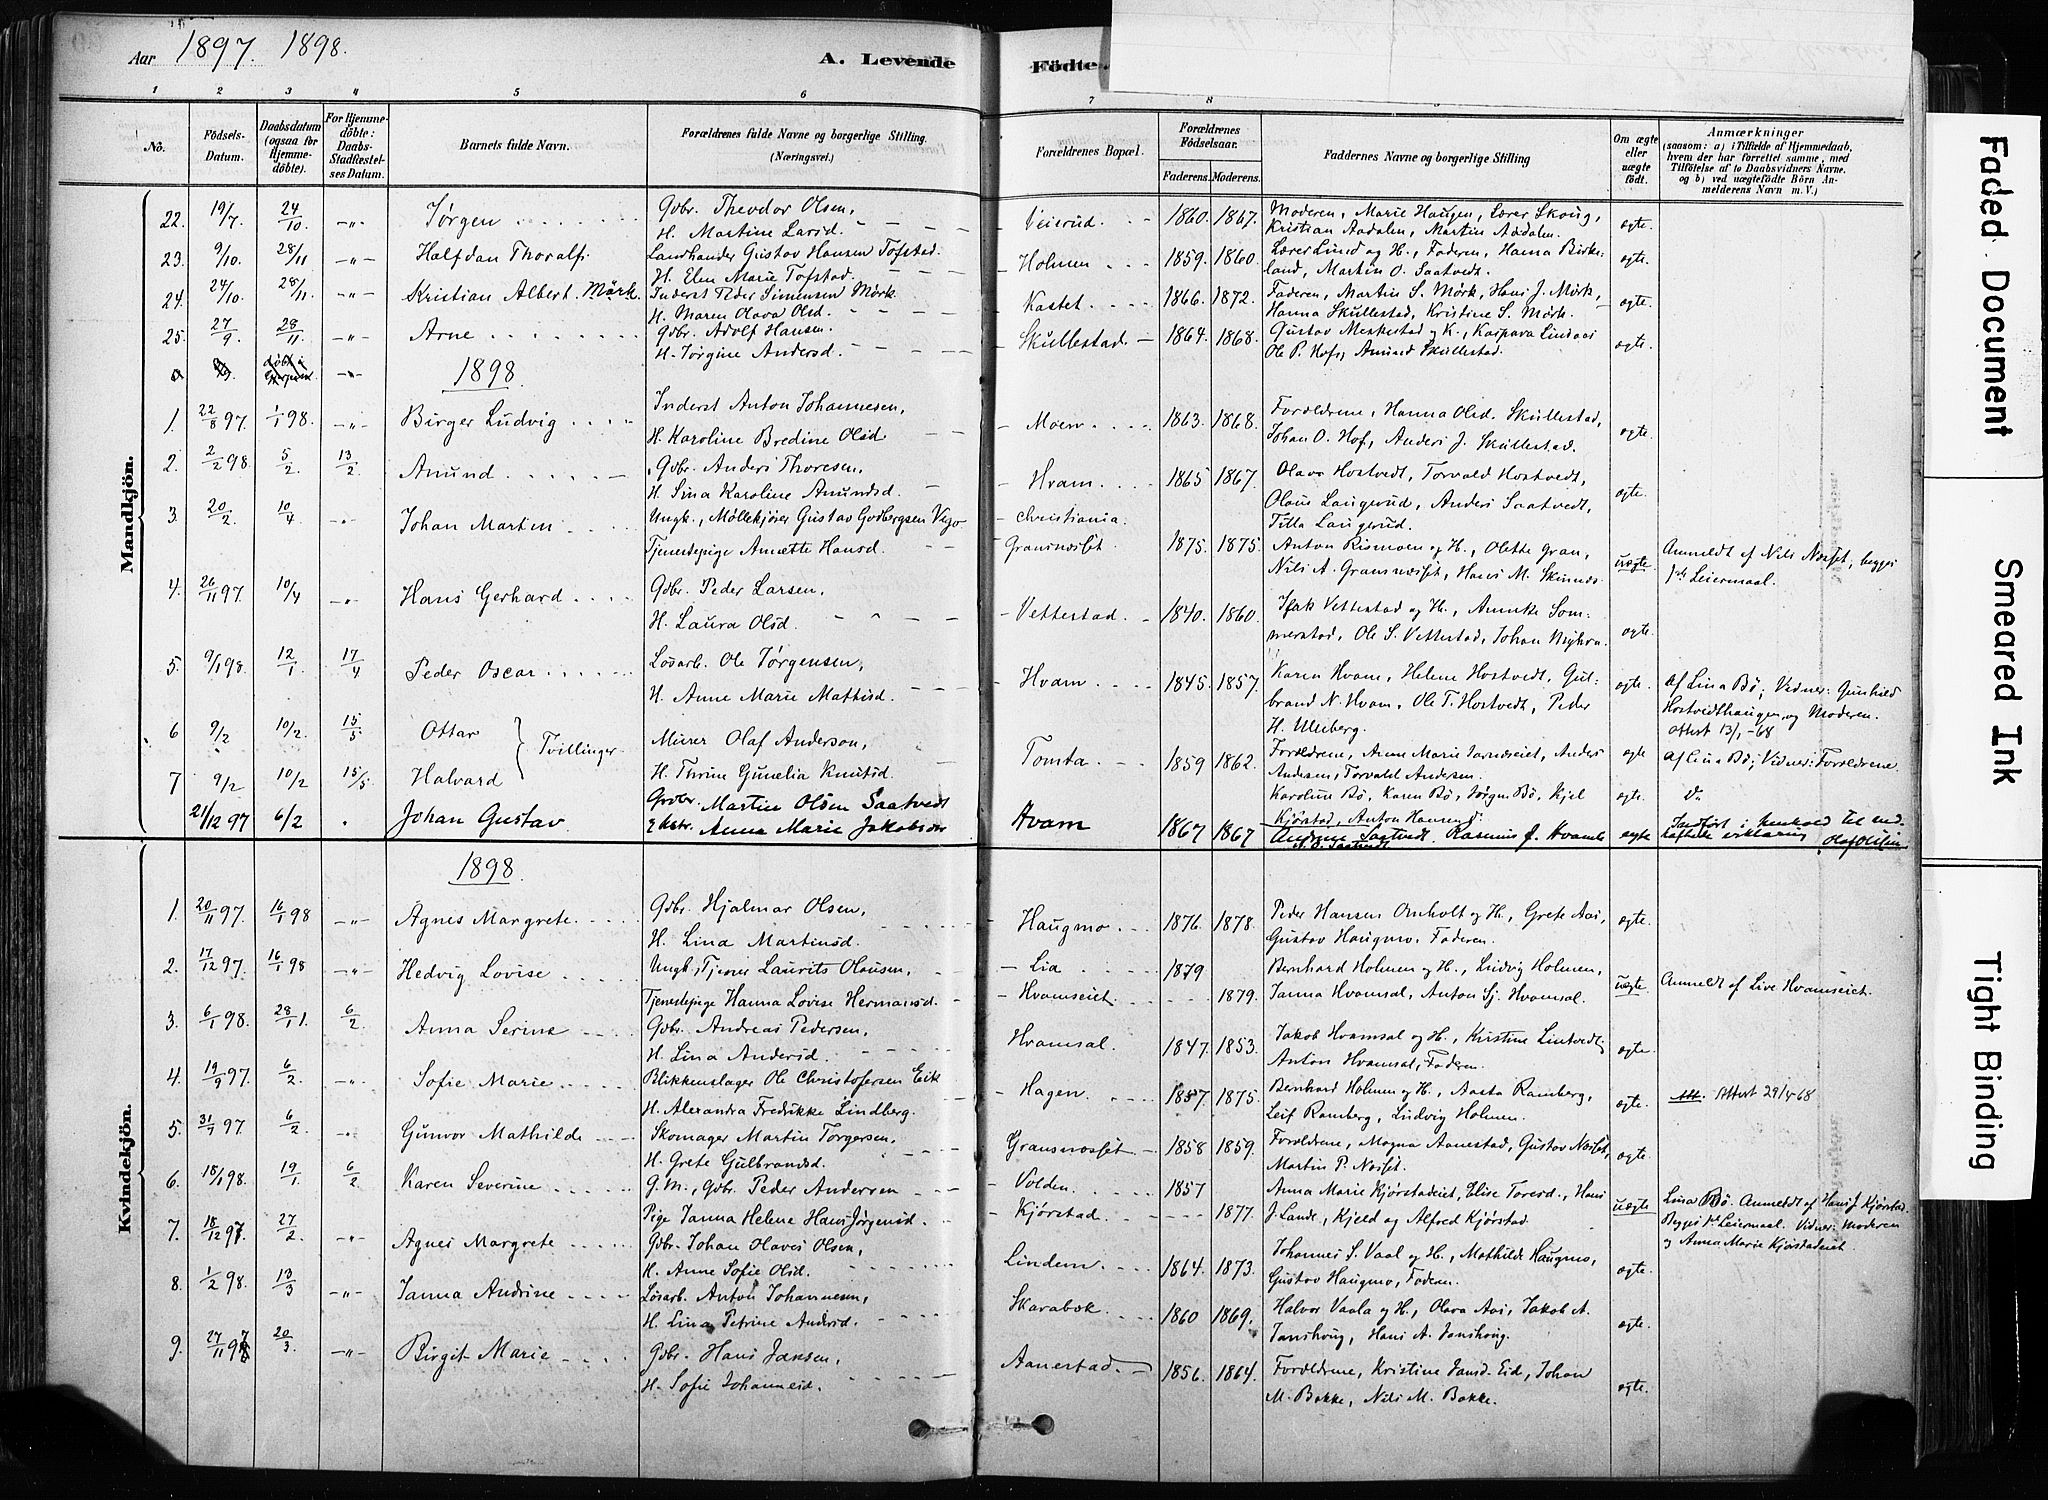 Aar 1897. 1898.
A. Levende Födte.
1 2 3 4 5 6 7 8
No.
Födsels-Datum.
Daabsdatum (ogsaa for Hjemmedöbte).
For Hjemmedöbte: Daabs-Stadfæstelses Datum.
Barnets fulde Navn.
Forældrenes fulde Navne og borgerlige Stilling. (Næringsvei.)
Forældrenes Bopæl.
Forældrenes Födselsaar.
Faderens. Moderens.
Faddernes Navne og borgerlige Stilling
Om ægte eller uægte født.
Anmærkninger
(saasom: a) i Tilfælde af Hjemmedaab, hvem der har forrettet samme, med Tilföielse af to Daabsvidners Navne. og b) ved uægtefödte Börn Anmelderens Navn m. V.)
Mandkjön.
22. 19/7. 24/10 -"- Jørgen Gbr. Theodor Olsen, Veierud. 1860. 1867. Moderen, Marie Haugen, Lærer Skoug, ægte.
H. Martine Larsd. Kristian Aadalen, Martin Aadalen.
23. 9/10. 28/11 -"- Halfdan Thoralf. Landhander Gustav Hansen Tofstad. Holmen 1859. 1860. Lærer Lund og H., Faderen, Hanna Birke- ægte.
H. Elen Marie Tofstad. land, Martin O. Saatvedt.
24. 24/10. 28/11. -"- Kristian Albert. Mørk. Inderst Peder Simensen Mørk. Kastet 1866. 1872. Faderen, Martin S. Mørk, Hans J. Mørk, ægte.
H. Maren Olava Olsd. Hanna Skullestad, Kristine S. Mørk.
25. 27/9. 28/11. -"- Arne Gbr. Adolf Hansen. Skullestad. 1864. 1868. Gustav Meskestad og K., Kaspara Lindaas ægte.
H. Jørgine Andersd. Ole P. Hof, Amund Skullestad.
1898.
1. 22/8 97. 1/1 98. -"- Birger Ludvig Inderst Anton Johannesen, Moen 1863. 1868. Forældrene, Hanna Olsd. Skullestad, ægte.
H. Karoline Bredine Olsd Johan O. Hof, Anders J. Skullestad.
2. 2/2 98. 5/2. 13/2 Amund Gbr. Anders Thoresen, Hvam. 1865 1867. Olava Hostvedt, Torvald Hostvedt, ægte.
H. Lina Karoline Amundsd. Olaus Laugerud, Anders Saatvedt,
Titta Laugerud.
3. 20/2. 10/4 -"- Johan Martin Ungk., Møllekjører Gustav Godbergsen Vego Christiania. 1875. 1875. Anton Rismoen og H., Olette Gran, uægte Anmeldt af Nils Næset, begges
Tjenestepige Annette Hansd. Gransnæsset Nils A. Gransnæsset, Hans M. Skinnæs 1ste Leiermaal.
4. 26/11 97. 10/4 -"- Hans Gerhard Gbr. Peder Larsen, Vettestad 1840. 1860. Isak Vettestad og H., Annike Som- ægte.
H. Laura Olsd. merstad, Ole S. Vettestad, Johan Myhra.
5. 9/1 98. 12/1. 17/4 Peder Oscar Løsarb. Ole Jørgensen, Hvam 1845. 1857. Karen Hvam, Helene Hostvedt, Gul- ægte. Af Lina Bø; Vidner: Gunhild
H. Anne Marie Mathisd. brand N. Hvam, Ole T. Hostvedt, Peder Hostvedthaugen, og Moderen.
H. Uleberg. Attest 13/1-68
6 9/2 10/2. 15/5 Ottar Tvillinger Murer Olaf Anderson, Tomta 1859 1862. Forældrene, Anne Marie , Anders ægte Af Lina Bø; Vidner: Forældrene.
Andersen, Torvald Andersen.
7 9/2 10/2 15/5. Halvard H. Thrine Gunelia Knutsd. Karoline Bø, Karen Bø, Jørgen Bø, Kjel ægte. Do
Kjørstad, Anton Hansen
21/12 97 6/2 Johan Gustav Grdbr. Martin Olsen Saatvedt Hvam 1867 1867 Andrine Saatvedt. Rasmus J. Hvam ægte Indført i henhold til ved-
Hustr. Anna Marie Jakobsdr Saatvedt hæftede erklæring Olaf Olsen
Kvindekjön.
1898.
1. 20/11 97. 16/1 98 -"- Agnes Margrete Gbr. Hjalmar Olsen, Haugmo 1876. 1878. Peder Hansen Omholt og H., Grete Aas, ægte.
H. Lina Martinsd. Gustav Haugmo, Faderen.
2. 17/12 97. 16/1 98 -"- Hedvig Lovise Ungk., Tjener Laurits Olausen, Lia 1879 Bernhard Holmen og H., Ludvig Holmen, uægte. Anmeldt af Live Hvamseiet.
Tjenestepige Hanna Lovise Hermansd. Hvamseiet 1879. Janna Hvamsal, Anton Sj. Hvamsal.
3. 6/1 98. 28/1. 6/2 Anna Serine Gbr. Andreas Pedersen, Hvamsal. 1847. 1853. Jakob Hvamsal og H., Kristine Lintvedt, ægte.
H. Lina Andersd. Anton Hvamsal, Faderen.
4. 19/9 97. 6/2 -"- Sofie Marie Blikkenslager Ole Christofersen Eik Hagen 1857. 1875. Bernhard Holmen og H., Aasta Ramberg, ægte. Attest 29/4 68
H. Alexandra Fredrikke Lindberg. Leif Ramberg, Ludvig Holmen.
5. 31/1 97. 6/2 Gunvor Mathilde Skomager Martin Torgersen, Gransnæsset 1858 1859. Forældrene, Magna Aanestad, Gustav Næset, ægte.
H. Grete Gulbrandsd. Martin P. Næset.
6. 18/1 98. 19/1 6/2 Karen Severine G.M., Gbr. Peder Andersen Volden 1857 Anna Marie Kjørstadeiet, Elise Toresd., Hans uægte Lina Bø. Anmeldt af Hans J. Kjørstad.
Pige Janna Helene Hans Jørgensd. Kjørstad. 1877. J. Lande, Kjeld og Alfred Kjørstad. Begges 1ste Leiermaal. Vidner: Moderen
og Anna Marie Kjørstadeiet.
7. 18/12 97. 27/2 -"- Agnes Margrete Gbr. Johan Olaves Olsen, Lindem 1864. 1873. Johannes S. Vaal og H., Mathilde Haugmo, ægte.
H. Anne Sofie Olsd. Gustav Haugmo, Faderen.
8. 1/2 98. 13/3 -"- Janna Andrine Løsarb. Anton Johannesen, Skarabæk 1860 1869. Halvor Vaala og H., Olava Aas, Jakob A. ægte.
H. Lina Petrine Andersd. Janshoug, Hans A. Janshoug.
9. 27/11 97 20/3 -"- Birgit Marie Gbr. Hans Jansen, Aanestad 1856. 1864. Forældrene, Kristine Jansd. Eid, Johan ægte.
H. Sofie Johannesd. M. Bakke, Nils M. Bakke.
Faded Document
Smeared Ink
Tight Binding